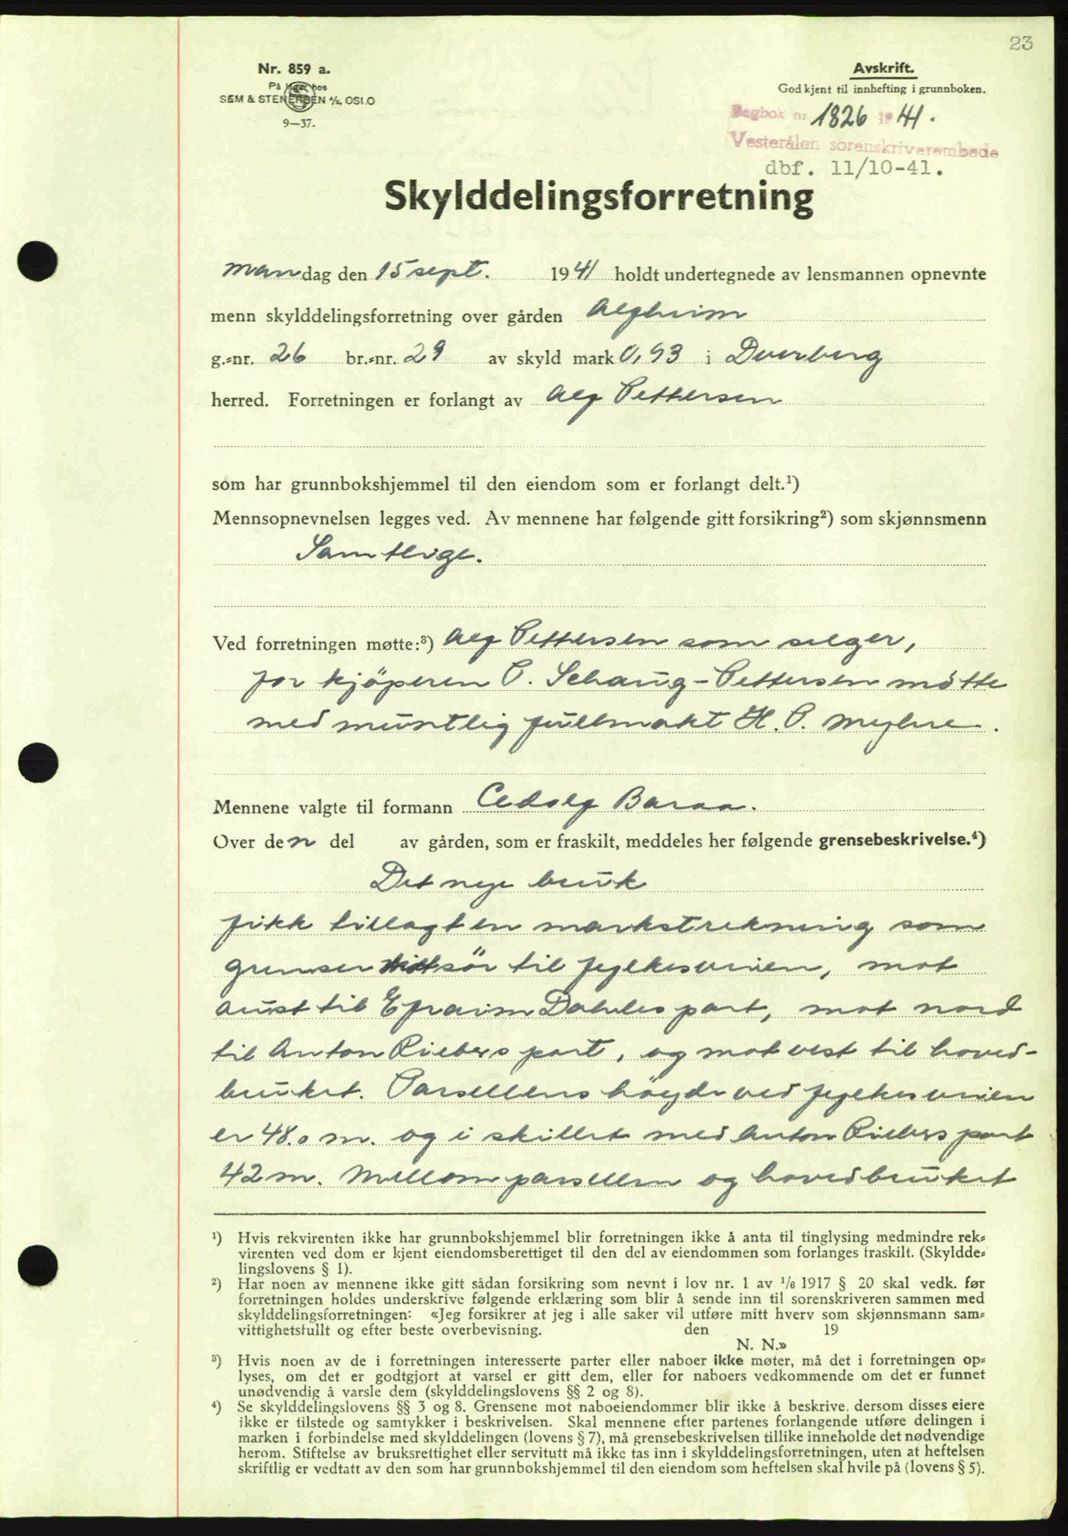 23
Nr. 859 a.
På lager hos
SEM & STENERSEN A/S, OSLO
9—37.
Avskrift.
Godkjent til innhefting i grunnboken.
Dagbok nr 1826 19 41.
Vesterålen sorenskriverembede
dbf. 11/10-41.
Skylddelingsforretning
Mandag den 15 sept. 19 41 holdt undertegnede av lensmannen opnevnte
menn skylddelingsforretning over gården Alfheim
g.-nr. 26 br.-nr. 29 av skyld mark 0,93 i Dverberg
herred. Forretningen er forlangt av Alf Pettersen
som har grunnbokshjemmel til den eiendom som er forlangt delt.¹)
Mennsopnevnelsen legges ved. Av mennene har følgende gitt forsikring²) som skjønnsmenn
Samtlige.
Ved forretningen møtte:³) Alf Pettersen som selger,
for kjöperen P. Schaug-Pettersen mötte
med muntlig fullmakt H. P. Myhre.
Mennene valgte til formann
Over den del av gården, som er fraskilt, meddeles her følgende grensebeskrivelse.⁴)
Det nye bruk
fikk tillagt en markstrekning som
grenser sör til fylkesveien, mot
aust til Efraim Dahles part, mot nord
til Anton Riebers part, og mot vest til hoved-
bruket. Parsellens höyde ved fylkesveien
er 48.0 m. og i skillet med Anton Riebers part
42 m. Mellom parsellen og hovedbruket
¹) Hvis rekvirenten ikke har grunnbokshjemmel blir forretningen ikke å anta til tinglysing medmindre rek-
virenten ved dom er kjent eiendomsberettiget til den del av eiendommen som forlanges fraskilt. (Skyldde-
lingslovens § 1).
²) Har noen av mennene ikke gitt sådan forsikring som nevnt i lov nr. 1 av 1/6 1917 § 20 skal vedk. før
forretningen holdes underskrive følgende erklæring som blir å sende inn til sorenskriveren sammen med
skylddelingsforretningen: «Jeg forsikrer at jeg i alle saker vil utføre mitt hverv som skjønnsmann sam-
vittighetsfullt og efter beste overbevisning. den 19
N. N.»
³) Hvis noen av de i forretningen interesserte parter eller naboer ikke møter, må det i forretningen op-
lyses, om det er godtgjort at varsel er gitt dem, eller for naboers vedkommende om det er funnet
unødvendig å varsle dem (skylddelingslovens §§ 2 og 8).
⁴) Se skylddelingslovens §§ 3 og 8. Grensene mot naboeiendommer blir ikke å beskrive, dersom disses eiere
ikke er tilstede og samtykker i beskrivelsen. Skal mennene efter partenes forlangende utføre delingen i
marken i forbindelse med skylddelingen (lovens § 7), må grensebeskrivelsen tillike inneholde det nødvendige
herom. Stiftelse av bruksrettighet eller servitutt må ikke tas inn i skylddelingsforretningen, uten at heftelsen
skriftlig er vedtatt av den som har grunnbokshjemmel til den eiendom som heftelsen skal hvile på (lovens § 5).